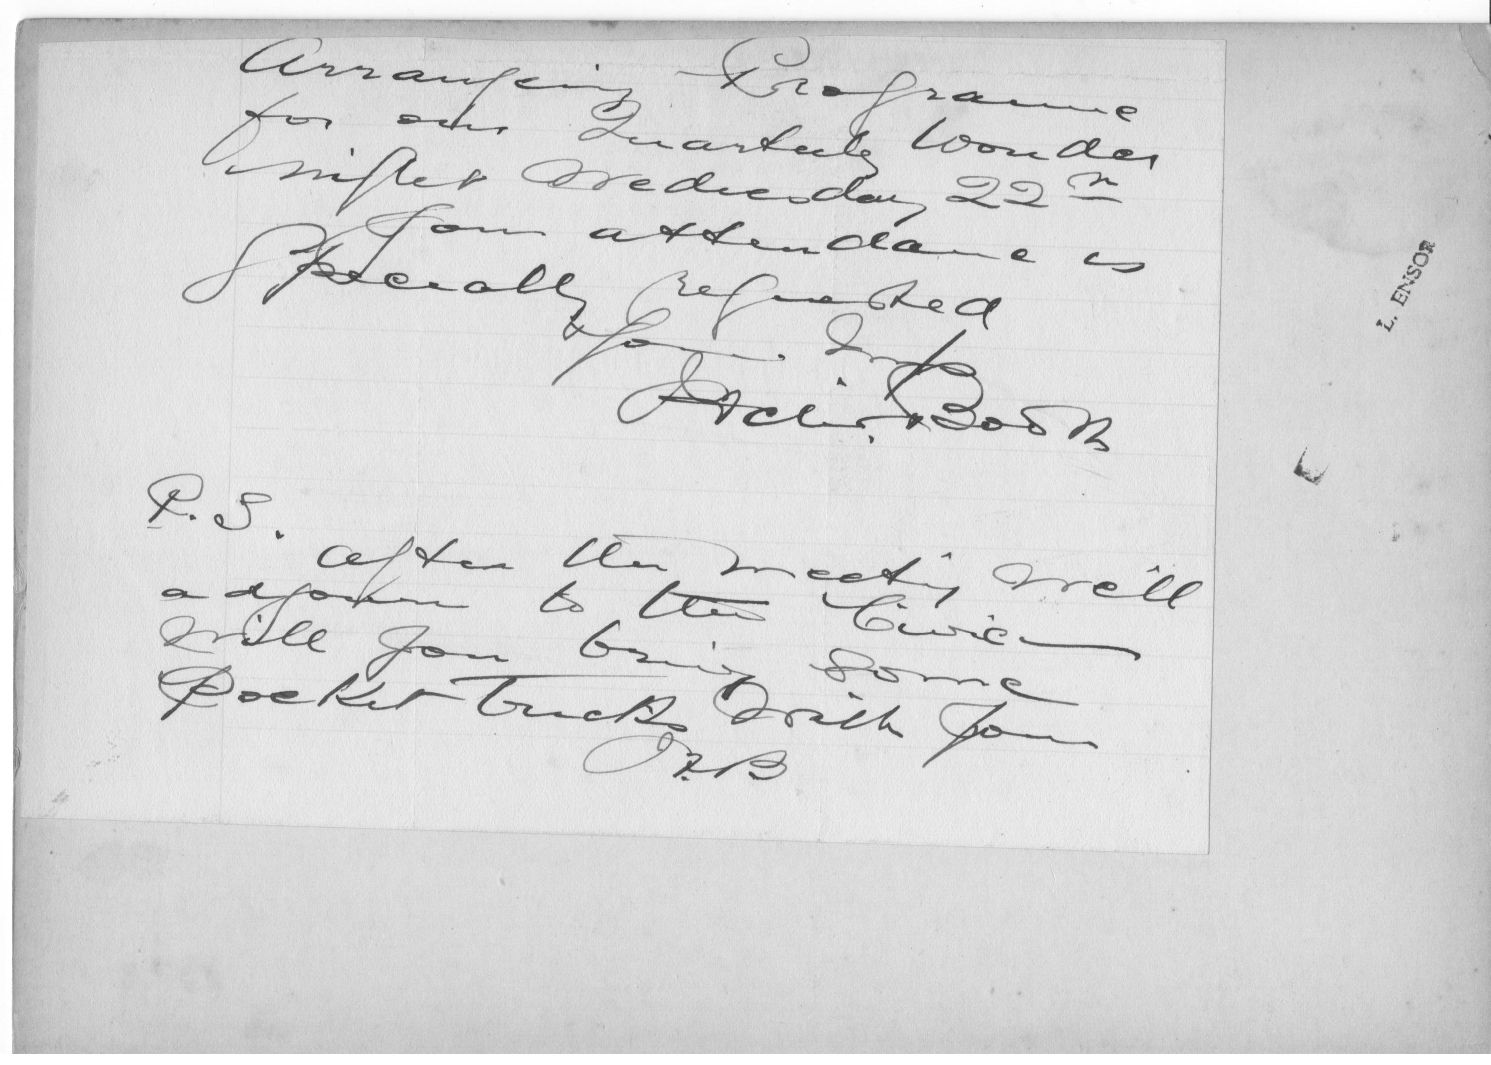 Arranging Programme
for our Quarterly Wonder
night Wednesday 22nd
Your attendance is
Specially requested
Yours
Booth
P.S.
After the meeting we'll
adjourn to the Civic
will you bring some
Pocket Tricks with you
B
L. ENSOR